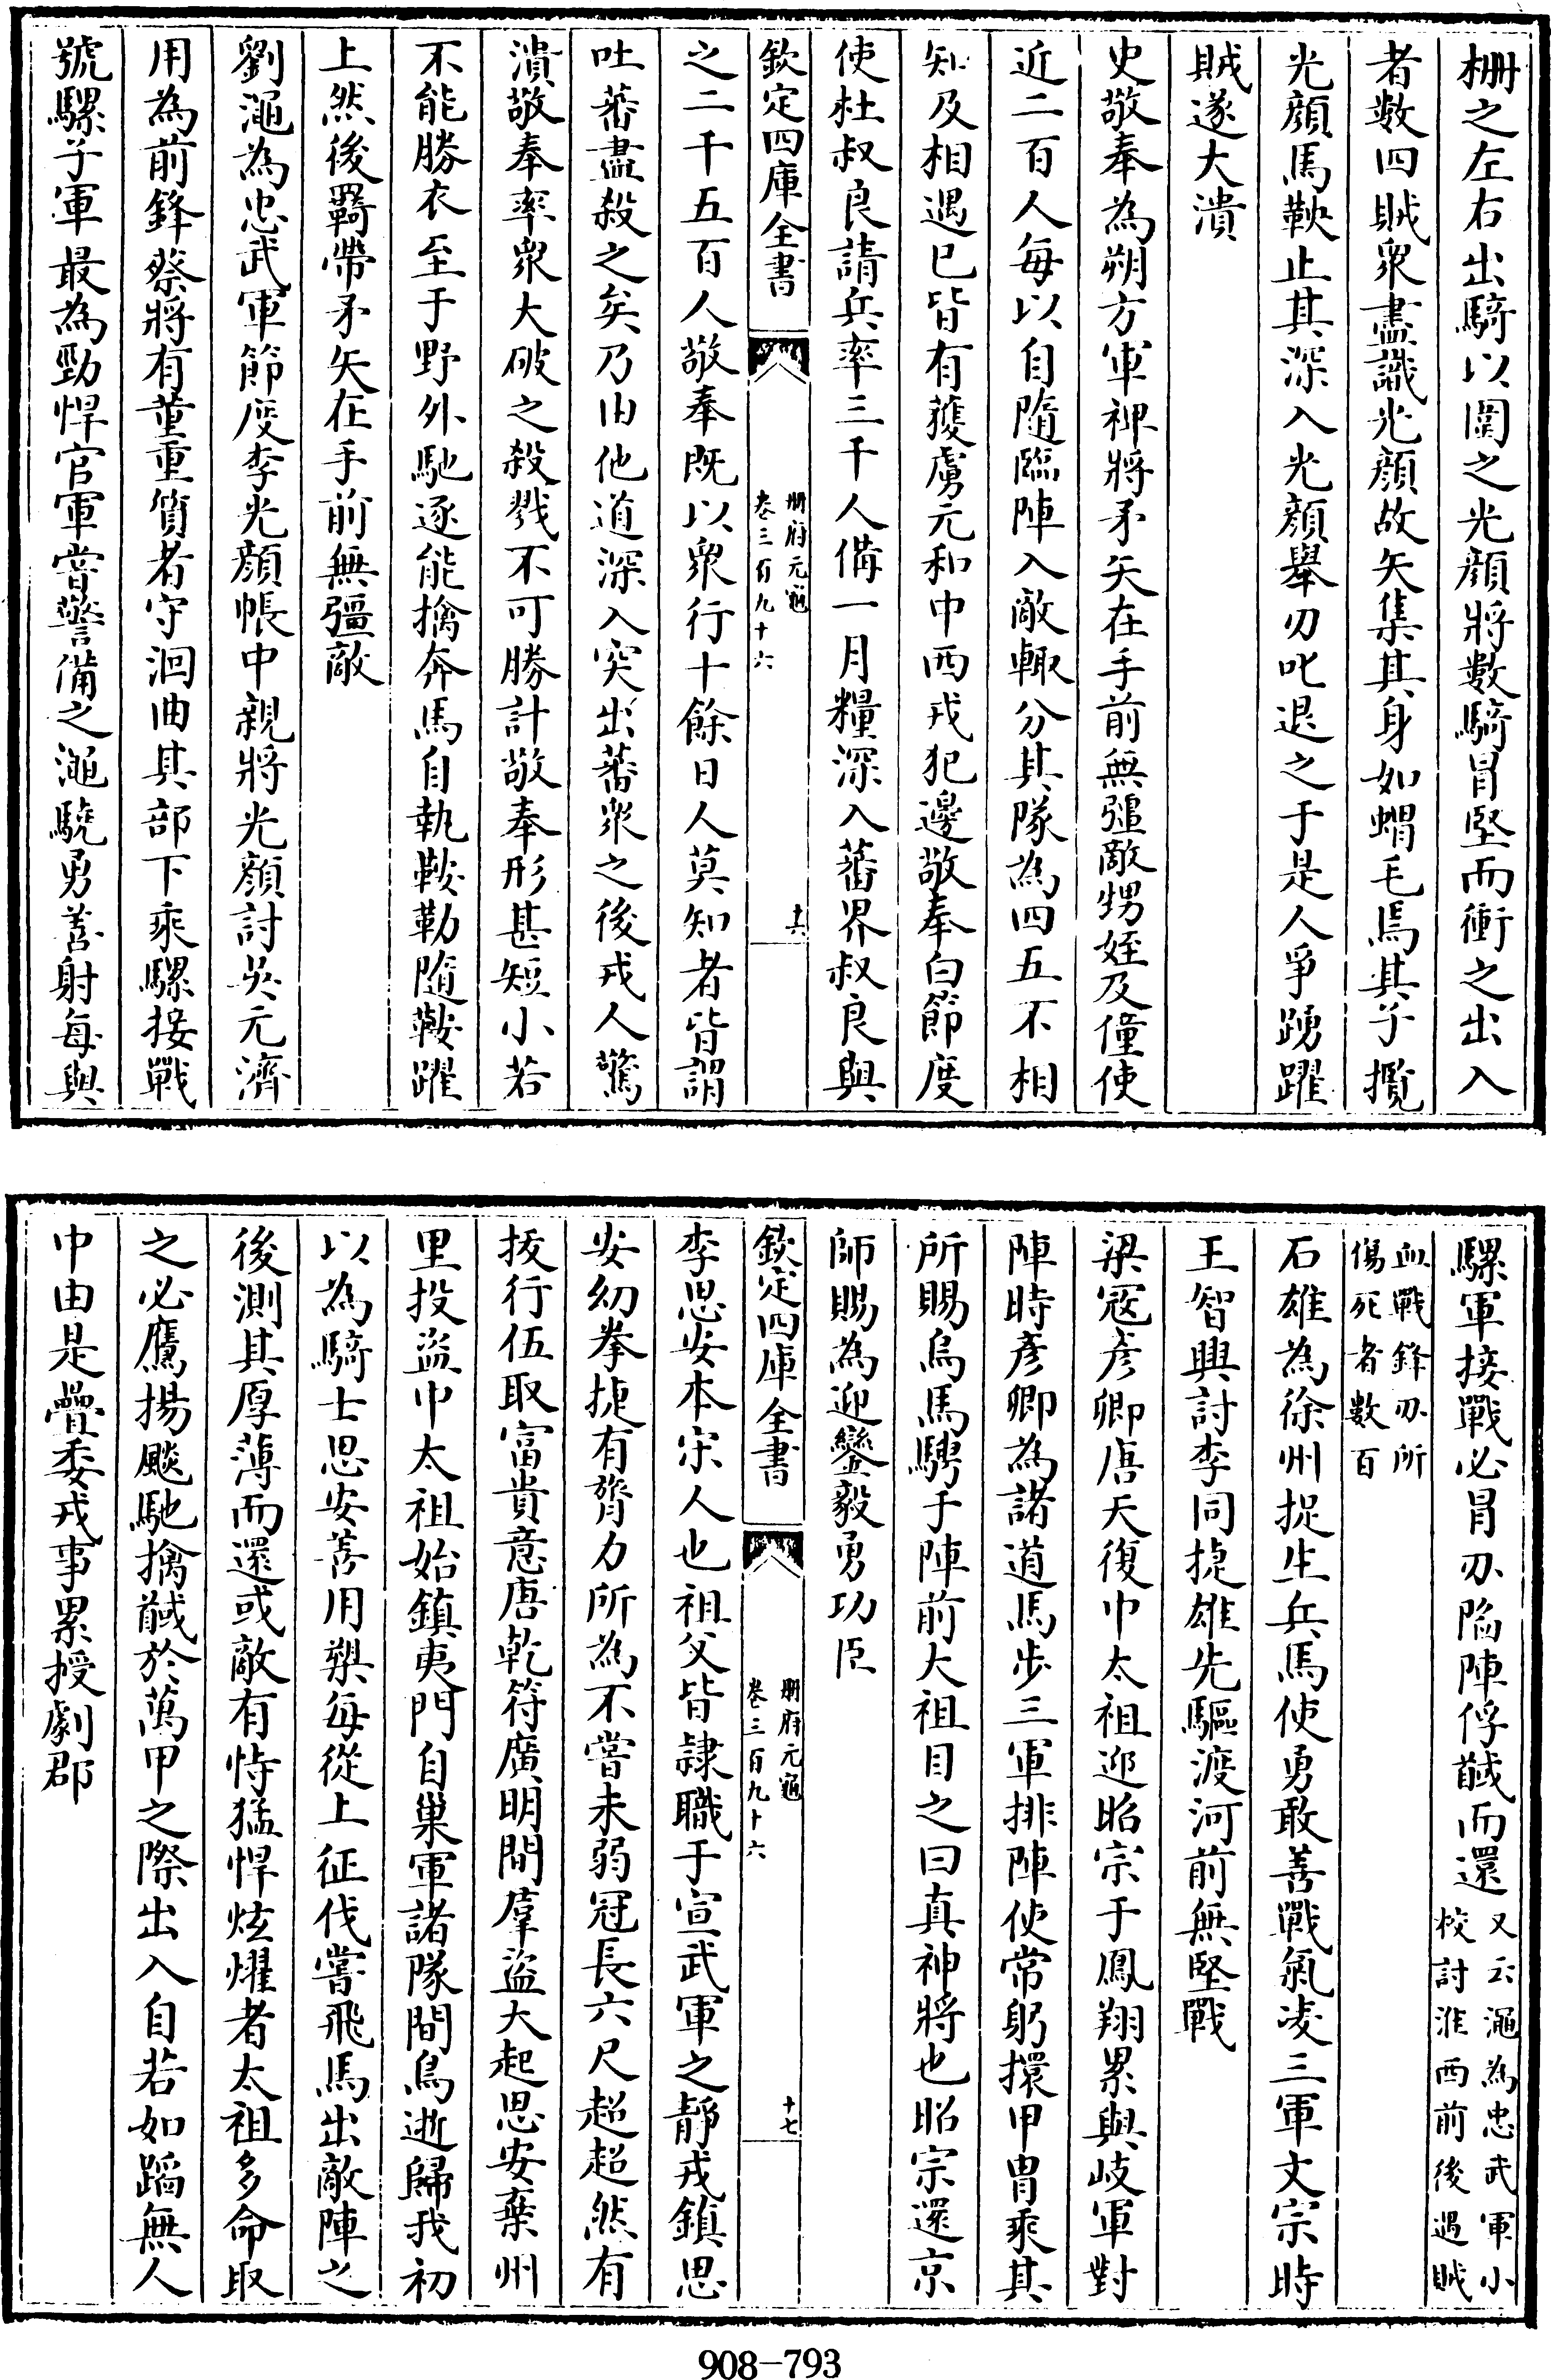 柵之左右出騎以圍之光顔將數騎冒堅而衝之出入
者數四賊衆盡識光顔故矢集其身如蝟毛焉其子攬
光顔馬鞅止其深入光顔舉刃叱退之于是人爭踴躍
賊遂大潰
史敬奉為朔方軍裨將矛矢在手前無彊敵甥姪及僮使
近二百人每以自隨臨陣入敵輒分其隊為四五不相
知及相遇已皆有獲虜元和中西戎犯邊敬奉白節度
使杜叔良請兵率三千人備一月糧深入蕃界叔良與
欽定四庫全書
冊府元龜
卷三百九十六
十六
之二千五百人敬奉既以衆行十餘日人莫知者皆謂
吐蕃盡殺之矣乃由他道深入突出蕃衆之後戎人驚
潰敬奉率衆大破之殺戮不可勝計敬奉形甚短小若
不能勝衣至于野外馳逐能擒奔馬自執鞍勒隨鞍躍
上然後羇帶矛矢在手前無彊敵
劉澠為忠武軍節度李光顔帳中親將光顔討吳元濟
用為前鋒蔡將有董重質者守洄曲其部下乘騾接戰
號騾子軍最為勁悍官軍嘗警備之澠驍勇善射每與
騾軍接戰必冒刃陷陣俘馘而還
又云澠為忠武軍小
校討淮西前後遇賊
血戰鋒刃所
傷死者數百
石雄為徐州捉生兵馬使勇敢善戰氣凌三軍文宗時
王智興討李同捷雄先驅渡河前無堅戰
梁寇彦卿唐天復中太祖迎昭宗于鳳翔累與岐軍對
陣時彦卿為諸道馬步三軍排陣使常躬擐甲冑乘其
所賜烏馬騁于陣前大祖目之曰真神將也昭宗還京
師賜為迎鑾毅勇功臣
欽定四庫全書
冊府元龜
卷三百九十六
十七
李思安本宋人也祖父皆隸職于宣武軍之靜戎鎮思
安幼拳捷有膂力所為不嘗未弱冠長六尺超超然有
拔行伍取富貴意唐乾符廣明間羣盜大起思安棄州
里投盜中太祖始鎮夷門自巢軍諸隊間鳥逝歸我初
以為騎士思安善用槊每從上征伐嘗飛馬出敵陣之
後測其厚薄而還或敵有恃猛悍炫燿者太祖多命取
之必鷹揚颷馳擒馘於萬甲之際出入自若如蹈無人
中由是疊委戎事累授劇郡
908-793